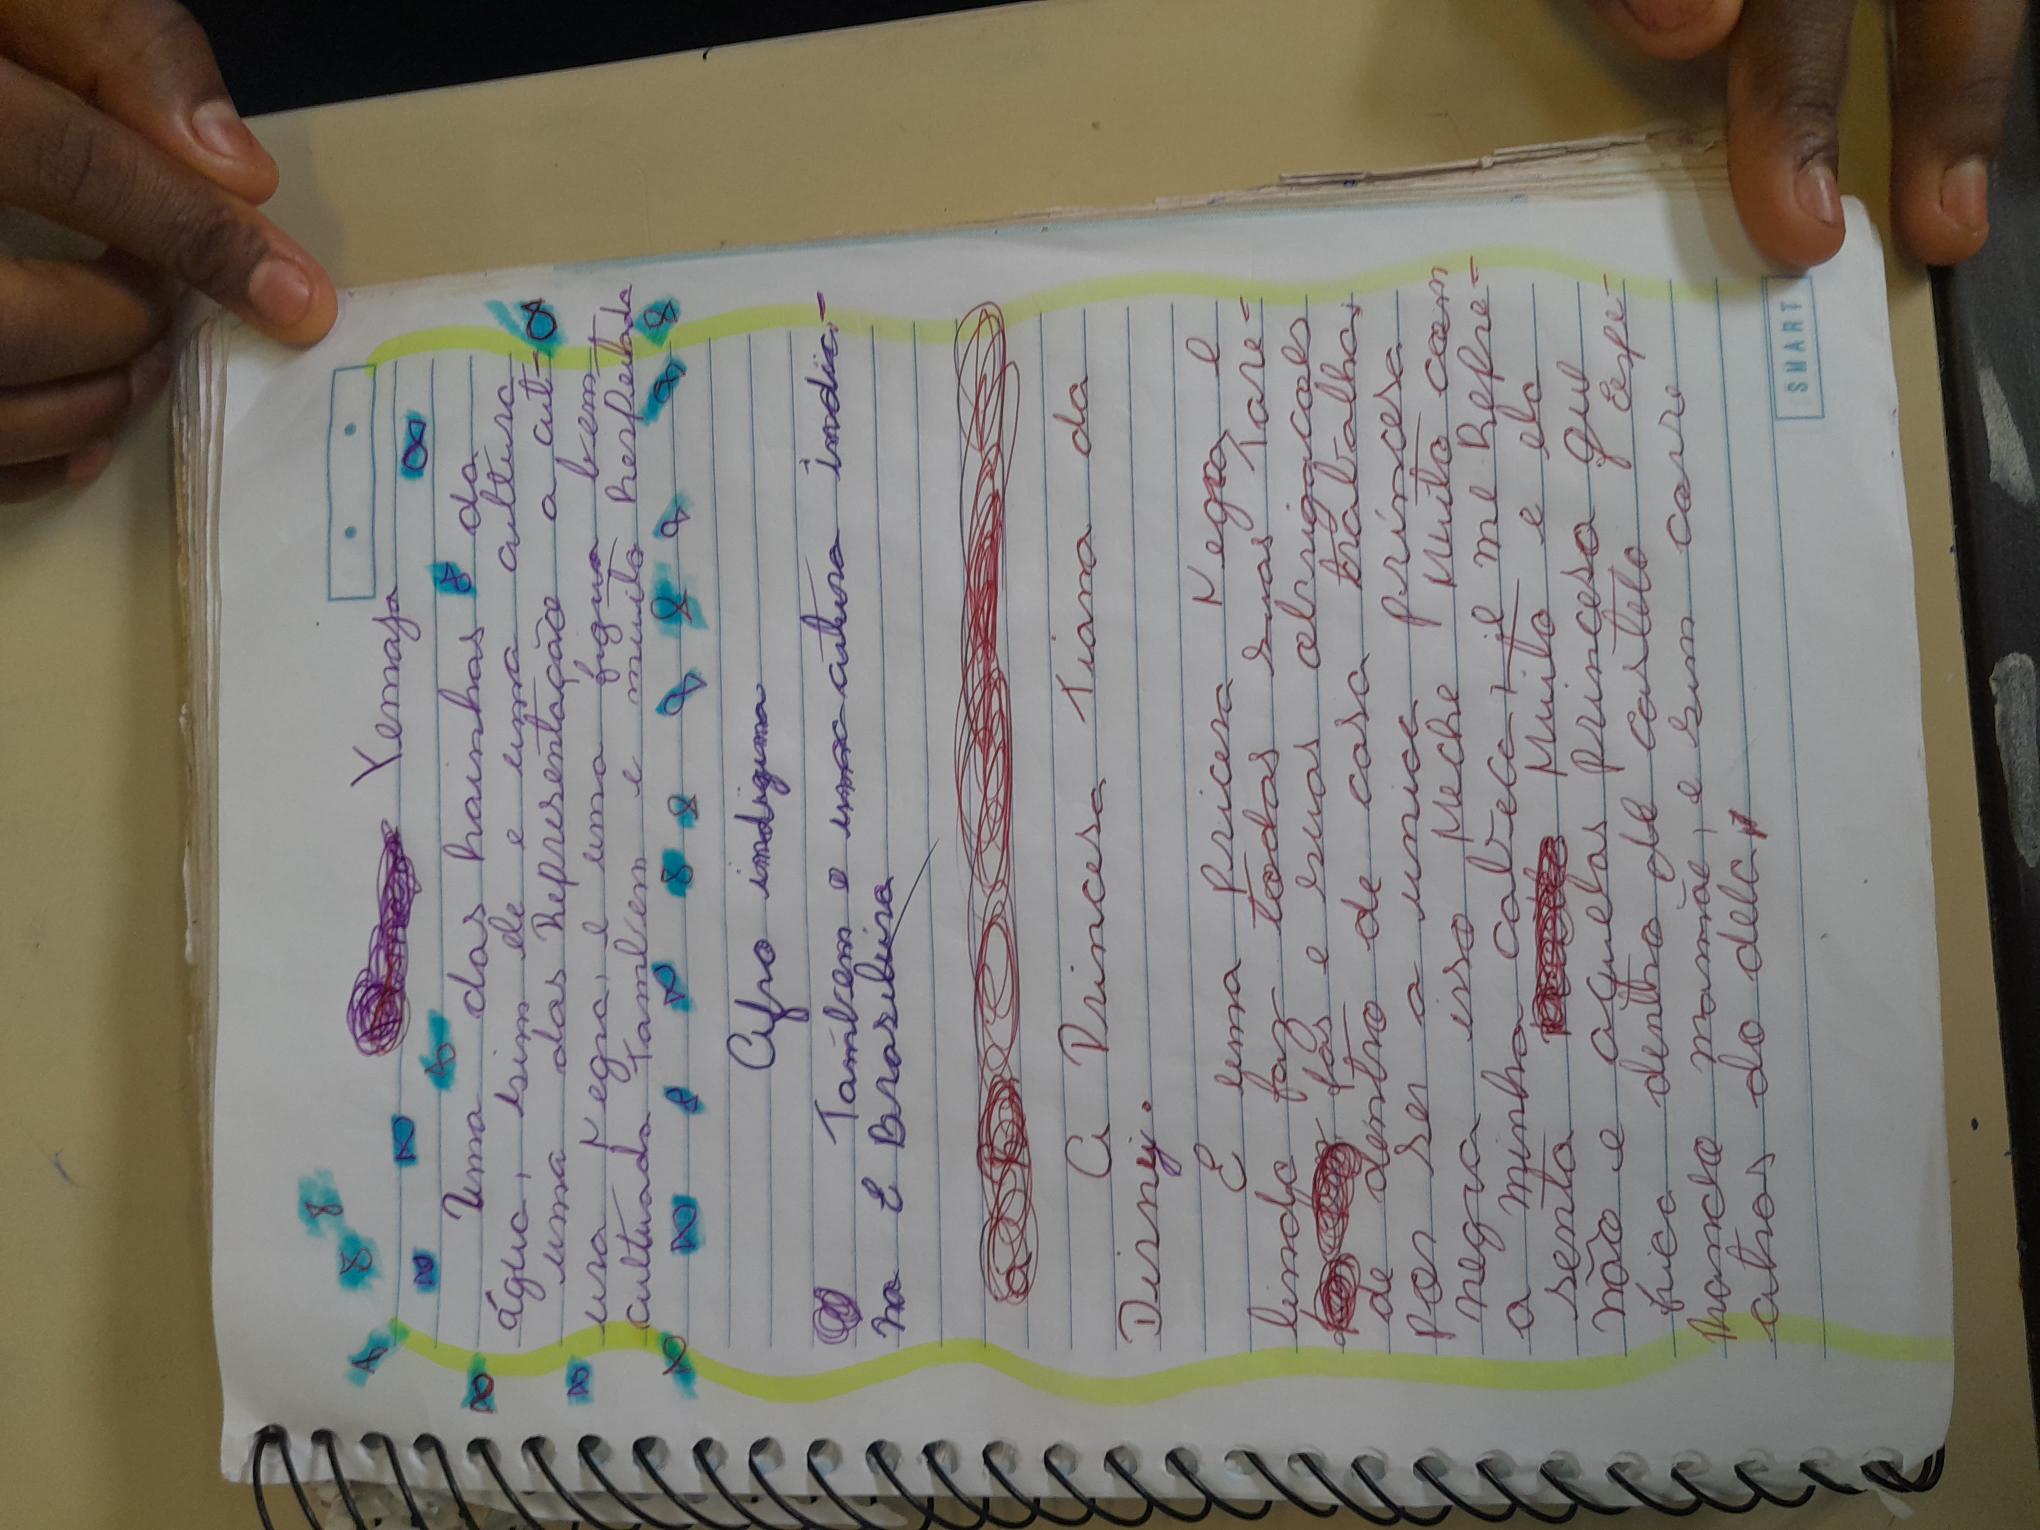 Yemaja
Uma das hainhas da
água, isim ele e uma cultura
uma das Representação a cut-
ura Negra, e uma figura bem
cultuada Tambem e muito Respeitada
Afro indiguna
Tambem e uma cutura indic-
na E Brasileira
A Princesa Tiana da
Disney.
E uma pricesa Negra e
linda faz todas suas Tare-
fas e suas obrigações
de dentro de casa trabalha,
por ser a unica princesa
negra isso meche muito com
a minha cabeca, e me Repre-
senta muito e ela
não e aquelas princesa que
fica dentro de castelo Espe-
rando mamãe, e sim corre
atras do dela,
SMART